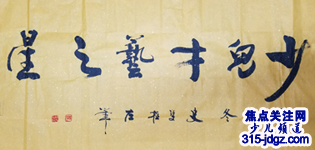 少兒才藝之星
冬
左筆
焦点关注网
少儿频道
315-jdgz.com